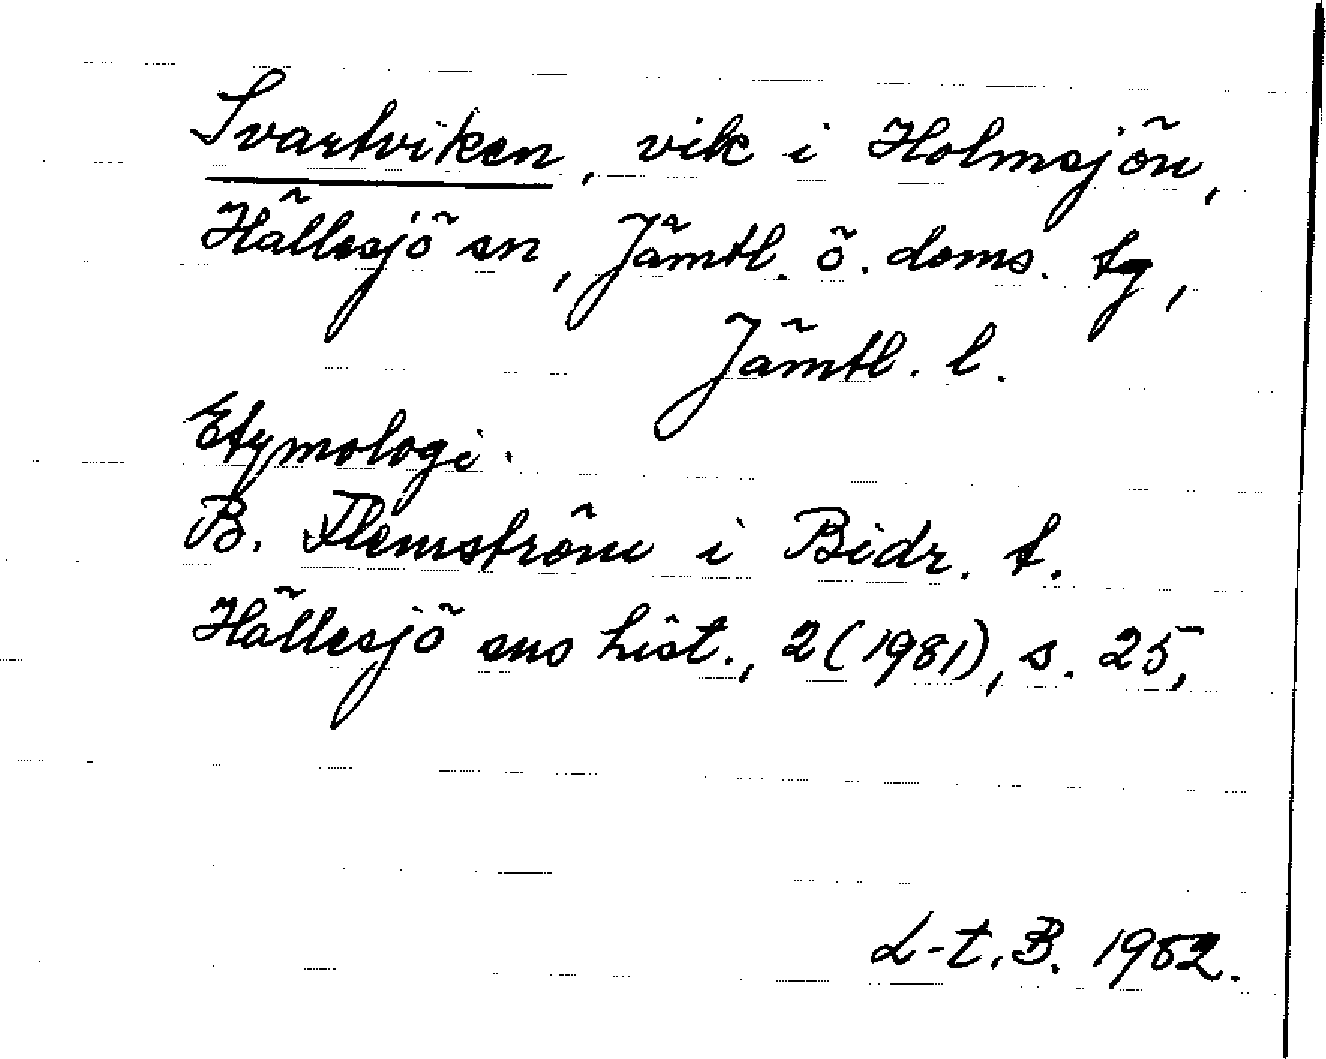 Svartviken, vik i Holmsjön,
Hällesjö sn, Jämtl. ö. doms. tg,
Jämtl. l.
Etymologi.
B. Flemström i Bidr. t.
Hällesjö sns hist., 2 (1981), s. 25,
L-t. B. 1982.